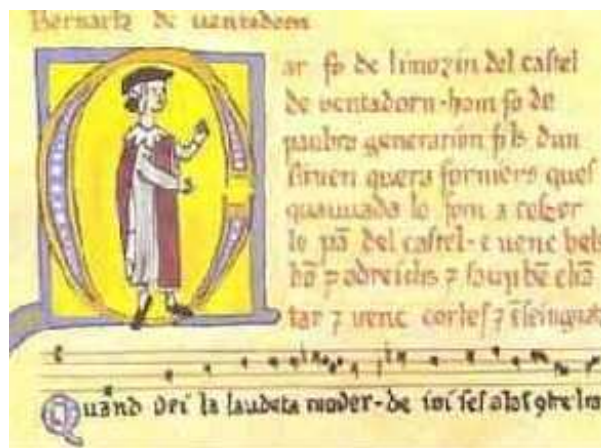 Bernartz de uentadorn
ar fo de limozin del castel
de uentadorn hom fo de
paubra generacion fils dun
siruen quera forniers ques
quauuada lo forn a cozer
lo pā del castel e uenc bels
hō ⁊ adreichs ⁊ saup bē chā
tar ⁊ uenc cortes ⁊
Quand uei la laudeta mouer de ioi ses alas